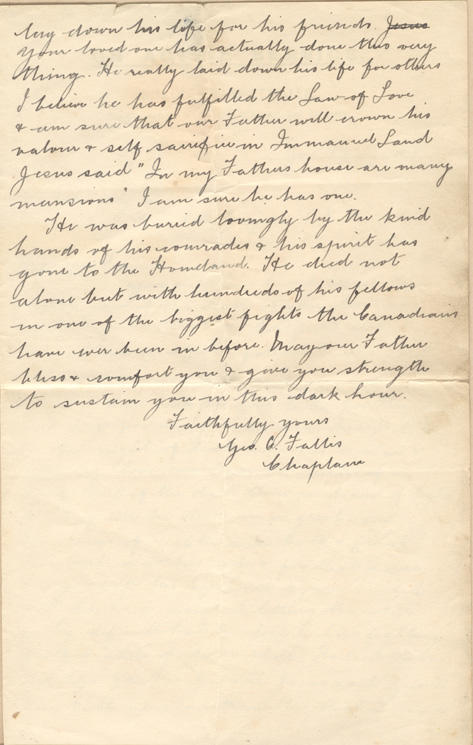 lay down his life for his friends. Jesus
Your loved one has actually done this very
thing. He really laid down his life for others
I believe he has fulfilled the Law of Love
& am sure that our Father will crown his
valour & self sacrifice in Immanuel Land
Jesus said "In my Fathers house are many
mansions" I am sure he has one.
He was buried lovingly by the kind
hands of his comrades & his spirit has
gone to the Homeland. He died not
alone but with hundreds of his fellows
in one of the biggest fights the Canadians
have ever been in before. May our Father
bless & comfort you & give you strength
to sustain you in this dark hour.
Faithfully yours
Geo. O. Fallis
Chaplain